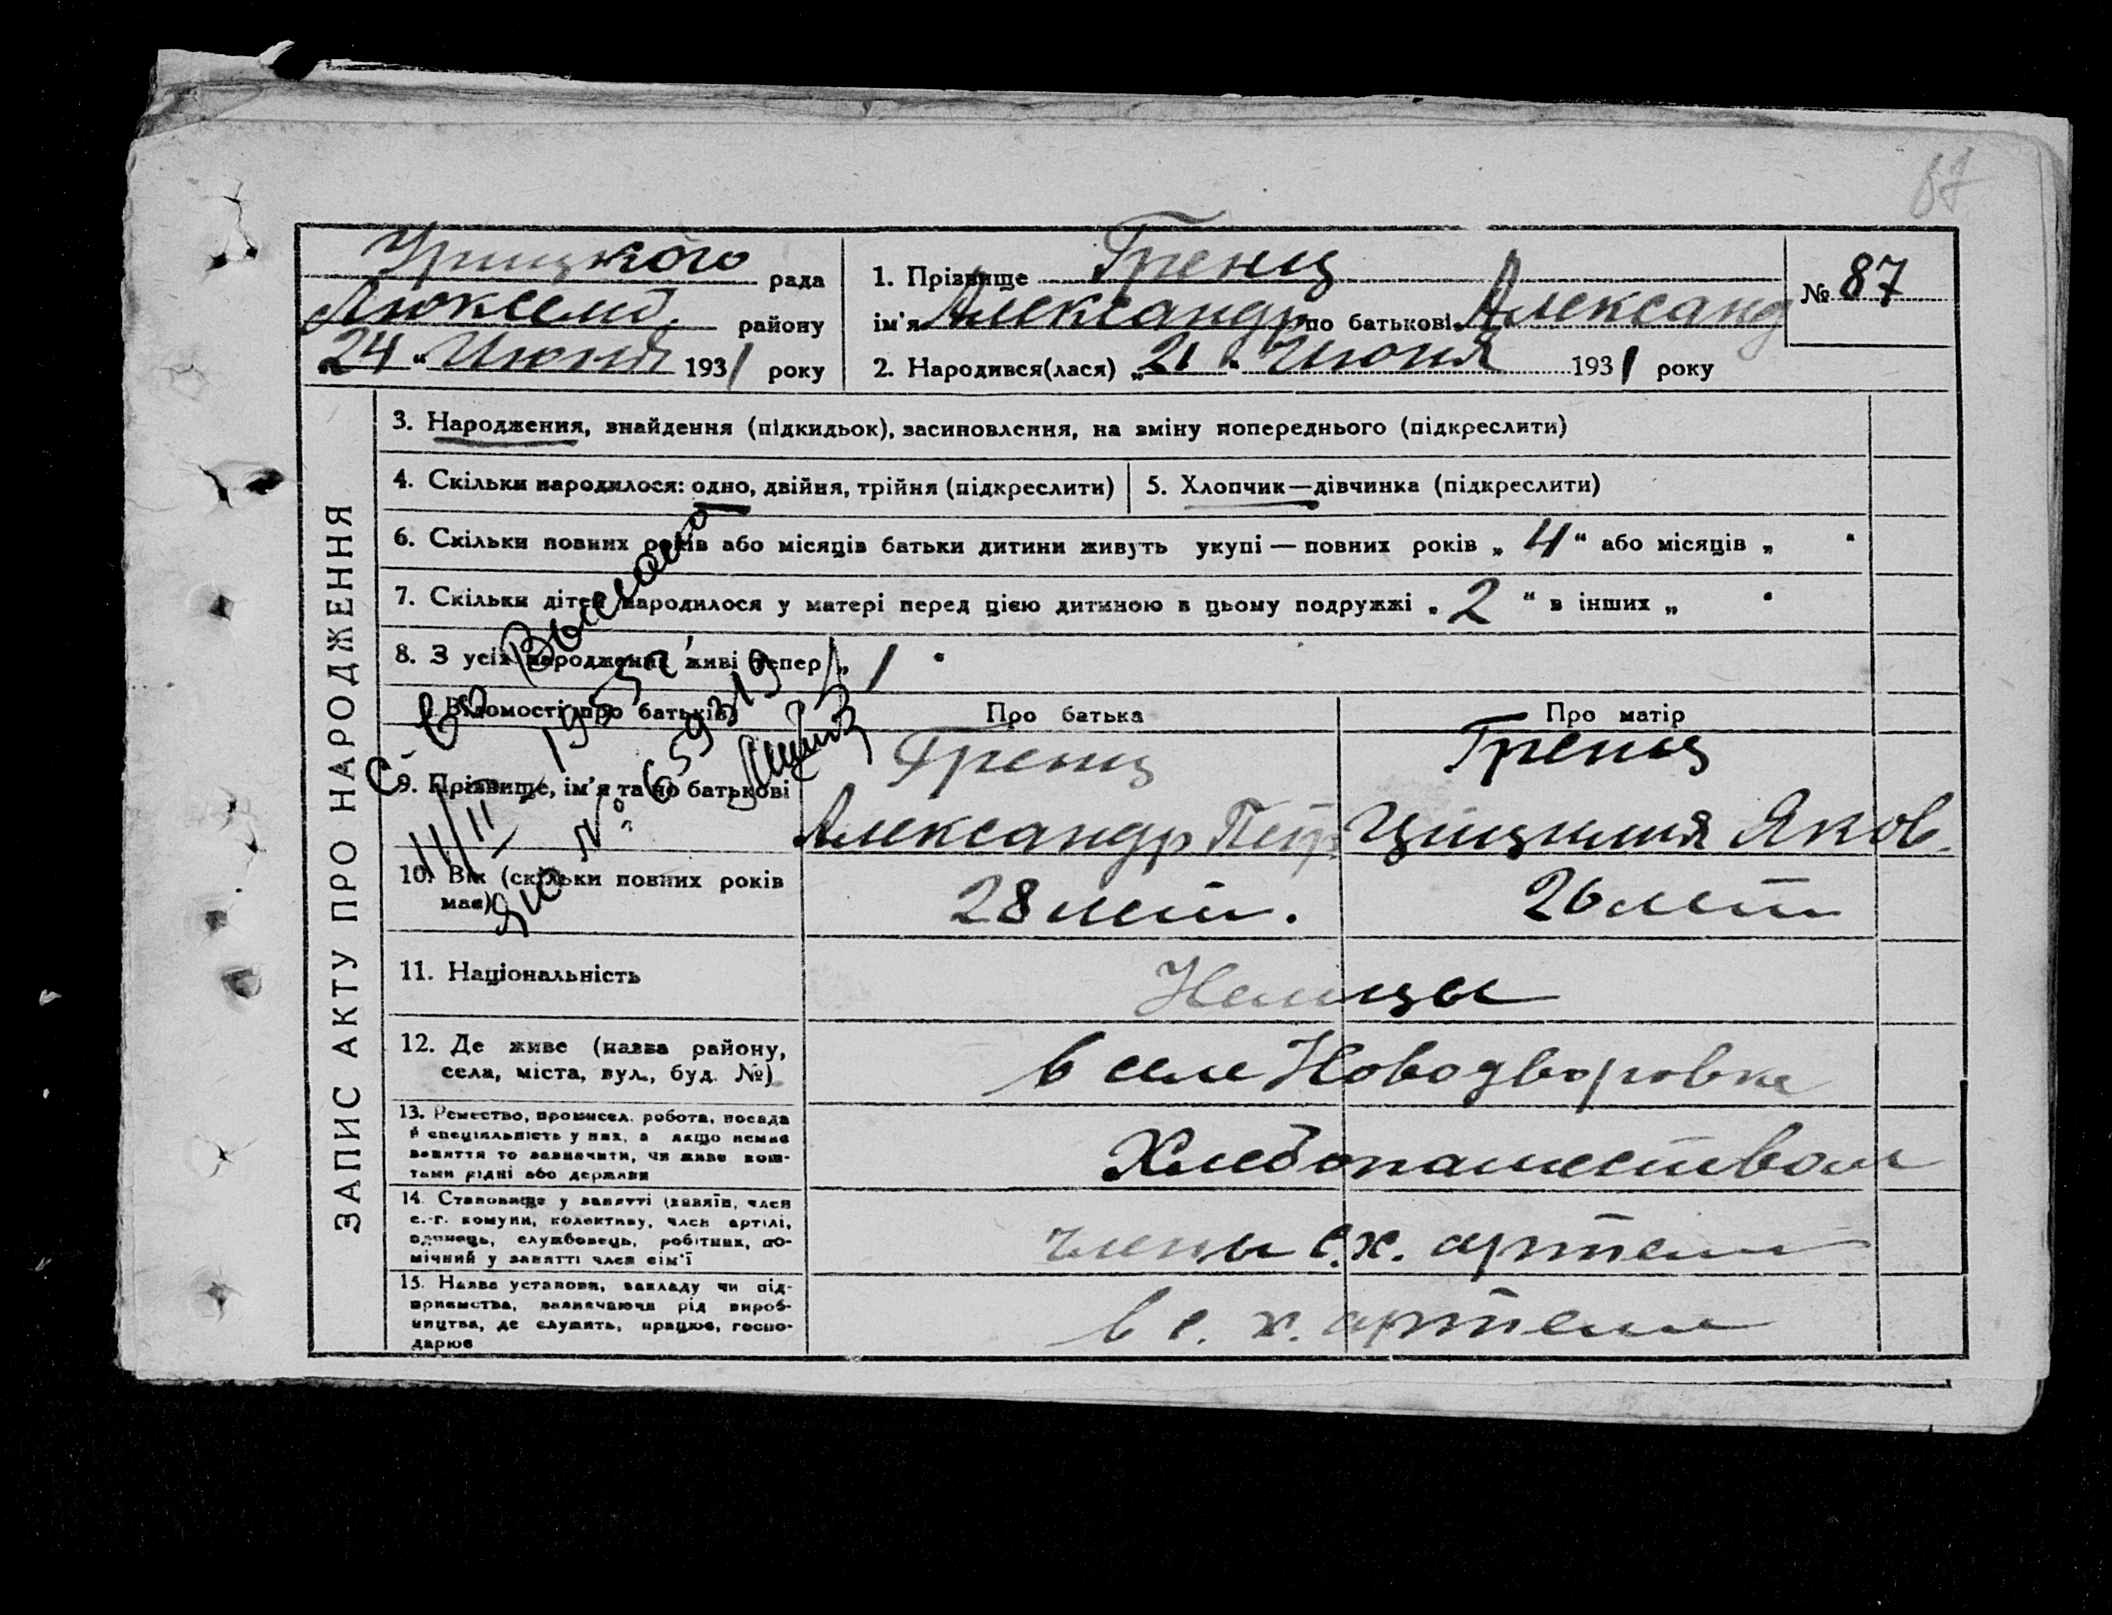 87
Урицкого рада
Люксемб. району
24 „ Июня 1931 року
1. Прізвище Гренц
ім'я Александр по батькові Александ
№ 87
2. Народився(лася) „21" Июня 1931 року
ЗАПИС АКТУ ПРО НАРОДЖЕННЯ
3. Народження, знайдення (підкидьок), засиновлення, на зміну попереднього (підкреслити)
4. Скільки народилося: одно, двійня, трійня (підкреслити)
5. Хлопчик—дівчинка (підкреслити)
6. Скільки повних років або місяців батьки дитини живуть укупі — повних років „4" або місяців „ "
7. Скільки дітей народилося у матері перед цією дитиною в цьому подружжі „2" в інших „ "
8. З усіх народжених живі тепер „1"
Відомості про батьків
Про батька
Про матір
9. Прізвище, ім'я та по батькові
Гренц
Александр Петр
Гренц
Цицилия Яков.
10. Вік (скільки повних років має)
28 лет.
26 лет
11. Національність
Немцы
12. Де живе (назва району, села, міста, вул., буд. №)
в селе Новодворовка
13. Ремество, промисел, робота, посада
й спеціяльність у них, а якщо немає
заняття то зазначити, чи живе кош-
тами рідні або держави
Хлебопашеством
14. Становище у занятті (хазяїн, член
с.-г. комуни, колективу, член артілі,
одинець, службовець, робітник, по-
мічний у занятті член сім'ї
члены с.х. артели
15. Назва установи, закладу чи під-
приємства, зазначаючи рід вироб-
ництва, де служить, працює, госпо-
дарює
в с. х. артели
С-во Выслано
11/II - 1955 г.
ЯЮ № 659319